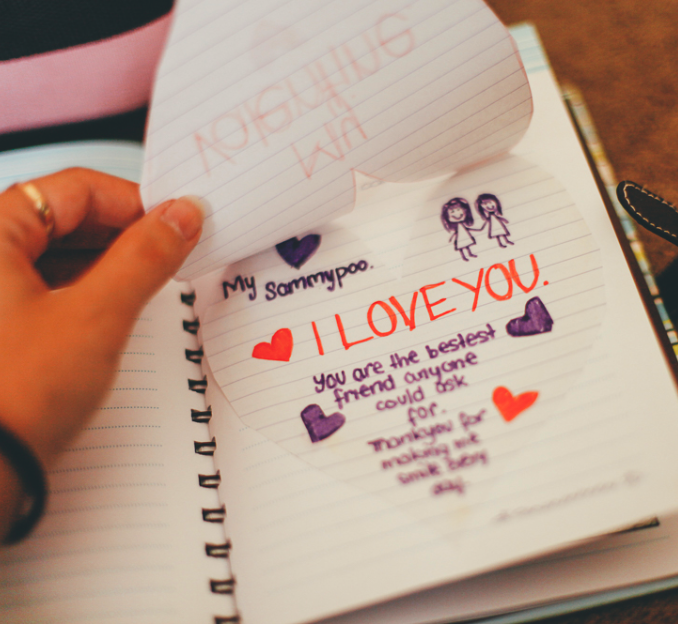 My
Valentine
My Sammypoo.
I LOVE YOU.
You are the bestest
friend anyone
could ask
for.
Thankyou for
making me
smile every
day.